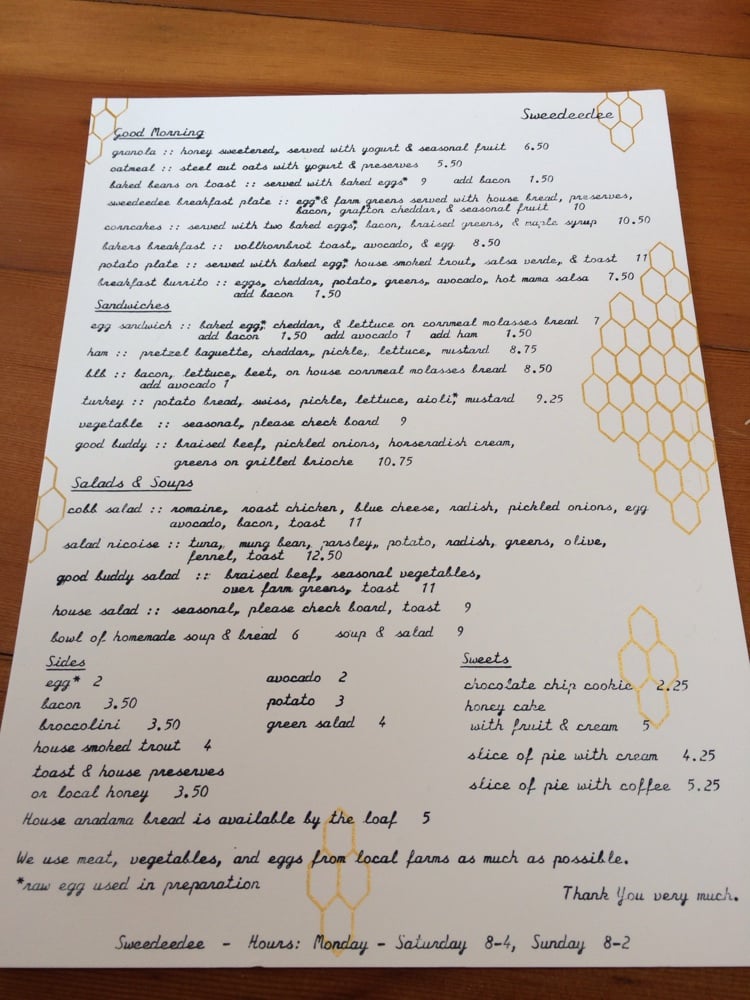 Sweedeedee
Good Morning
granola :: honey sweetened, served with yogurt & seasonal fruit 6.50
oatmeal :: steel cut oats with yogurt & preserves 5.50
baked beans on toast :: served with baked eggs* 9 add bacon 1.50
sweedeedee breakfast plate :: egg*& farm greens served with house bread, preserves,
bacon, grafton cheddar, & seasonal fruit 10
corncakes :: served with two baked eggs*, bacon, braised greens, & maple syrup 10.50
bakers breakfast :: vollkornbrot toast, avocado, & egg 8.50
potato plate :: served with baked egg*, house smoked trout, salsa verde, & toast 11
breakfast burrito :: eggs, cheddar, potato, greens, avocado, hot mama salsa 7.50
add bacon 1.50
Sandwiches
egg sandwich :: baked egg*, cheddar, & lettuce on cornmeal molasses bread 7
add bacon 1.50 add avocado 1 add ham 1.50
ham :: pretzel baguette, cheddar, pickle, lettuce, mustard 8.75
blb :: bacon, lettuce, beet, on house cornmeal molasses bread 8.50
add avocado 1
turkey :: potato bread, swiss, pickle, lettuce, aioli*, mustard 9.25
vegetable :: seasonal, please check board 9
good buddy :: braised beef, pickled onions, horseradish cream,
greens on grilled brioche 10.75
Salads & Soups
cobb salad :: romaine, roast chicken, blue cheese, radish, pickled onions, egg
avocado, bacon, toast 11
salad nicoise :: tuna, mung bean, parsley, potato, radish, greens, olive,
fennel, toast 12.50
good buddy salad :: braised beef, seasonal vegetables,
over farm greens, toast 11
house salad :: seasonal, please check board, toast 9
bowl of homemade soup & bread 6 soup & salad 9
Sides
egg* 2
bacon 3.50
broccolini 3.50
house smoked trout 4
toast & house preserves
or local honey 3.50
avocado 2
potato 3
green salad 4
Sweets
chocolate chip cookie 2.25
honey cake
with fruit & cream 5
slice of pie with cream 4.25
slice of pie with coffee 5.25
House anadama bread is available by the loaf 5
We use meat, vegetables, and eggs from local farms as much as possible.
*raw egg used in preparation
Thank You very much.
Sweedeedee - Hours: Monday - Saturday 8-4, Sunday 8-2